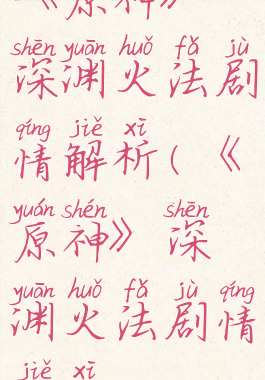 《原神》
shēn yuān huǒ fǎ jù
深渊火法剧
qíng jiě xī
情解析(《
yuán shén shēn
原神》 深
yuān huǒ fǎ jù qíng
渊火法剧情
jiě xī